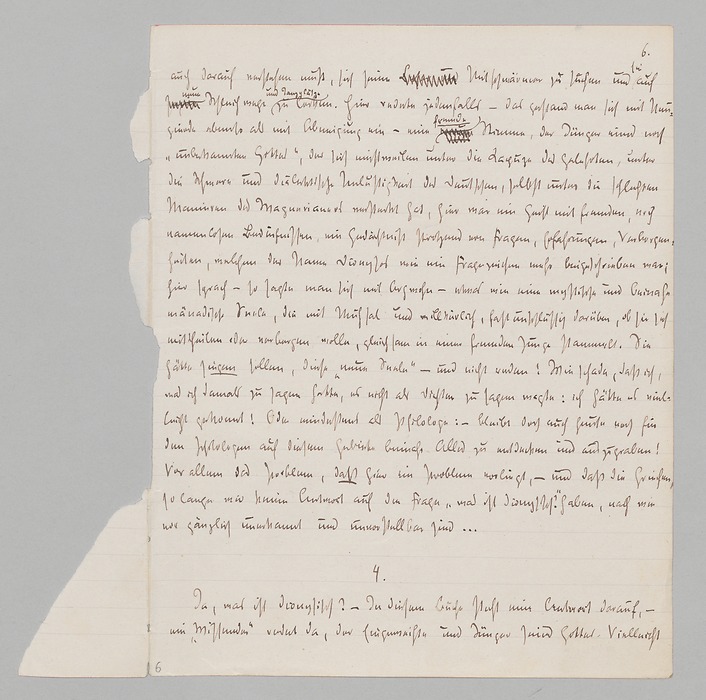 6.
auch darauf verstehen muß, sich seine Mitschwärmer zu suchen und sie auf
neue Schleichwege und Tanzplätze zu locken. Hier redete jedenfalls – das gestand man sich mit Neu-
gierde ebenso als mit Abneigung ein – eine fremde Stimme, der Jünger eines noch
„unbekannten Gottes", der sich einstweilen unter die Kapuze des Gelehrten, unter
die Schwere und dialektische Unlustigkeit des Deutschen, selbst unter die schlechten
Manieren des Wagnerianers versteckt hat, hier war ein Geist mit fremden, noch
namenlosen Bedürfnissen, ein Gedächtniß strotzend von Fragen, Erfahrungen, Verborgen-
heiten, welchen der Name Dionysos wie ein Fragezeichen mehr beigeschrieben war;
hier sprach – so sagte man sich mit Argwohn – etwas wie eine mystische und beinahe
mänadische Seele, die mit Mühsal und willkürlich, fast unschlüssig darüber, ob sie sich
mittheilen oder verbergen wolle, gleichsam in einer fremden Zunge stammelt. Sie
hätte singen sollen, diese „neue Seele" – und nicht reden! Wie schade, daß ich,
was ich damals zu sagen hatte, es nicht als Dichter zu sagen wagte: ich hätte es viel-
leicht gekonnt! Oder mindestens als Philologe: – bleibt doch auch heute noch für
den Philologen auf diesem Gebiete beinahe Alles zu entdecken und auszugraben!
Vor allem das Problem, daß hier ein Problem vorliegt, – und daß die Griechen,
so lange wir keine Antwort auf die Frage „was ist dionysisch?" haben, nach wie
vor gänzlich unerkannt und unvorstellbar sind ...
4.
Ja, was ist dionysisch? – In diesem Buche steht eine Antwort darauf, –
ein „Wissender" redet da, der Eingeweihte und Jünger seines Gottes. Vielleicht
6